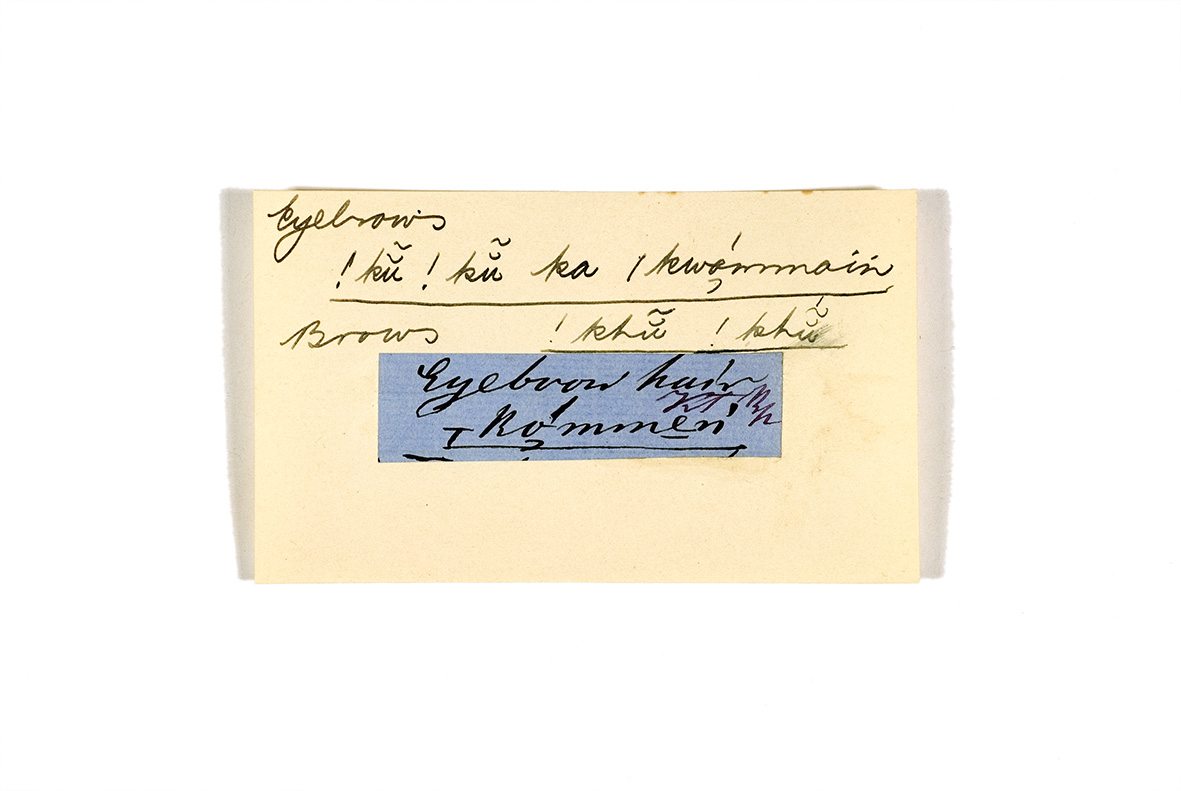 Eyebrows
!kũ̆ !kũ̆ ka /kwó̧mmain
Brows !khũ̆ !khũ̆
Eyebrow hair
ɪkó̧mmen̄